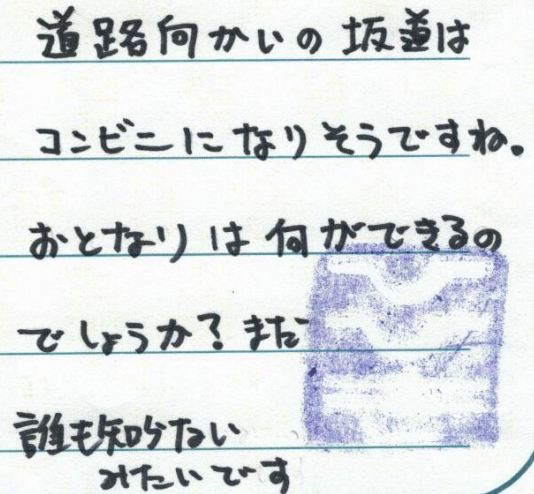 道路向かいの坂道は
コンビニになりそうですね。
おとなりは何ができるの
でしょうか？まだ
誰も知らない
みたいです